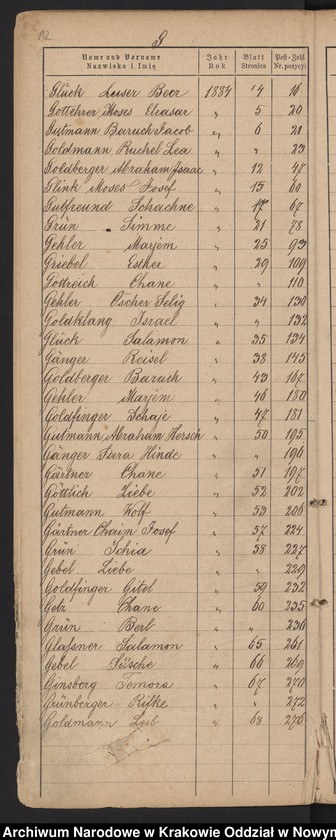 12
G
Name und Vorname Jahr Blatt Post-Zahl
Nazwisko i Imię Rok Stronica Nr. pozycyi
Glück Leiser Beer 1884 4 16
Gottehrer Moses Eleasar " 5 20
Gutmann Baruch Jacob " 6 21
Goldmann Ruchel Lea " " 23
Goldberger Abraham Isaac " 12 47
Glink Moses Josef " 15 60
Gutfreund Schachne " 17 67
Grün Simme " 21 78
Gehler Marjem " 25 93
Griebel Esther " 29 109
Gottreich Chane " " 110
Gehler Oscher Selig " 34 130
Goldklang Israel " " 132
Glück Salamon " 35 134
Gänger Reisel " 38 145
Goldberger Baruch " 43 167
Gehler Marjem " 46 180
Goldfinger Schaje " 47 181
Gutmann Abraham Hersch " 50 195
Gänger Sara Hinde " " 196
Gärtner Chane " 51 197
Göttlich Liebe " 52 202
Gutmann Wolf " 53 206
Gärtner Chaim Josef " 57 224
Grün Schia " 58 227
Gebel Liebe " " 229
Goldfinger Gitel " 59 232
Getz Chane " 60 235
Grün Berl " " 236
Glassner Salamon " 65 261
Gebel Süsche " 66 269
Ginsberg Temora " 67 270
Grünberger Rifke " " 272
Goldmann Leib " 68 276
Archiwum Narodowe w Krakowie Oddział w Nowym